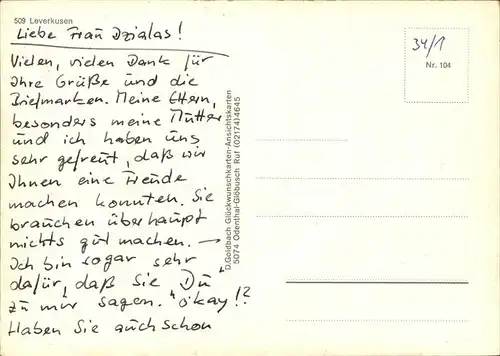 509 Leverkusen
Liebe Frau Dzialas!
Vielen, vielen Dank für
Ihre Grüße und die
Briefmarken. Meine Eltern,
besonders meine Mutter
und ich haben uns
sehr gefreut, daß wir
Ihnen eine Freude
machen konnten. Sie
brauchen überhaupt
nichts gut machen. →
Ich bin sogar sehr
dafür, daß Sie "Du"
zu mir sagen. "okay"!?
Haben Sie auch schon
D. Goldbach Glückwunschkarten-Ansichtskarten
5074 Odenthal-Glöbusch Ruf (02174) 4645
34/1
Nr. 104